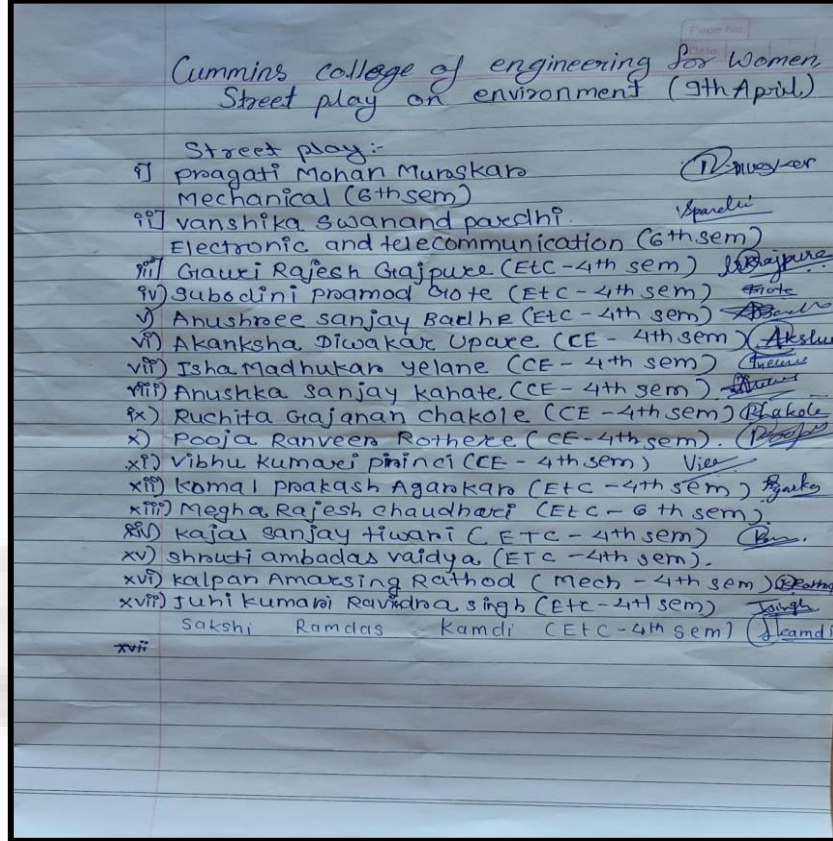 Page No.
Date
Cummins college of engineering for Women
Street play on environment (9th April)
Street play:-
i] pragati Mohan Muraskar
Mechanical (6th sem)
ii] vanshika swanand pardhi.
Electronic and telecommunication (6th sem)
iii] Gauri Rajesh Gajpure (EtC - 4th sem)
iv) Subodini pramod Gote (EtC - 4th sem)
v) Anushree sanjay Badhe (EtC - 4th sem)
vi) Akanksha Diwakar Upare (CE - 4th sem)
vii) Isha Madhukar yelane (CE - 4th sem)
viii) Anushka sanjay kahate (CE - 4th sem)
ix) Ruchita Gajanan chakole (CE - 4th sem)
x) Pooja Ranveer Rothere (CE - 4th sem).
xi) vibhu kumari (CE - 4th sem)
xii) komal prakash Agarkar (EtC - 4th sem)
xiii) Megha Rajesh chaudhari (EtC - 6th sem)
xiv) kajal sanjay tiwari (ETC - 4th sem)
xv) shruti ambadas vaidya (ETC - 4th sem).
xvi) kalpan Amarsing Rathod (mech - 4th sem)
xvii) Juhi kumari Ravidra singh (Etc - 4th sem) Jsingh
Sakshi Ramdas Kamdi (EtC - 4th sem) Skamdi
xvii